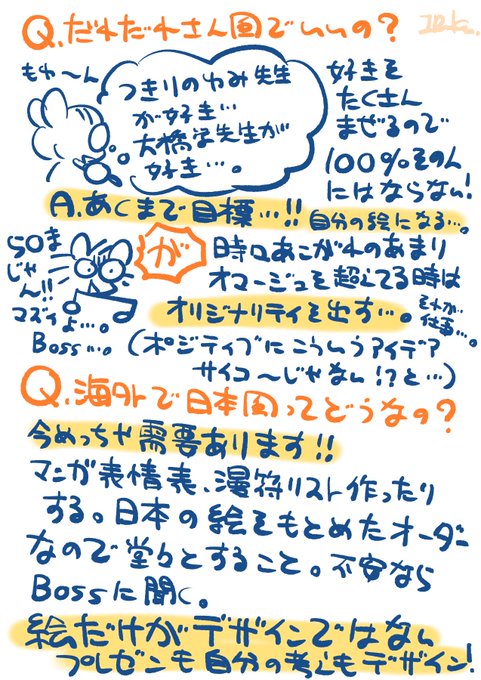 Q.だれだれさん風でいいの?
もわ〜ん
つきりのゆみ先生
が好き…
大橋学先生が
好き…。
好きを
たくさん
まぜるので
100%その人
にはならない!
A.あくまで目標…!! 自分の絵になる…。
らのま
じゃ
ん!!
マズイよ…。
Boss…。
が
時々あこがれのあまり
オマージュを超えてる時は
オリジナリティを出す…。それが
仕事…。
(ポジティブにこういうアイデア
サイコ〜じゃない!?と…)
Q.海外で日本風ってどうなの?
今めっちゃ需要あります!!
マンガ表情表、漫符リスト作ったり
する。日本の絵をもとめたオーダー
なので堂々とすること。不安なら
Bossに聞く。
絵だけがデザインではない
プレゼンも自分の考えもデザイン!